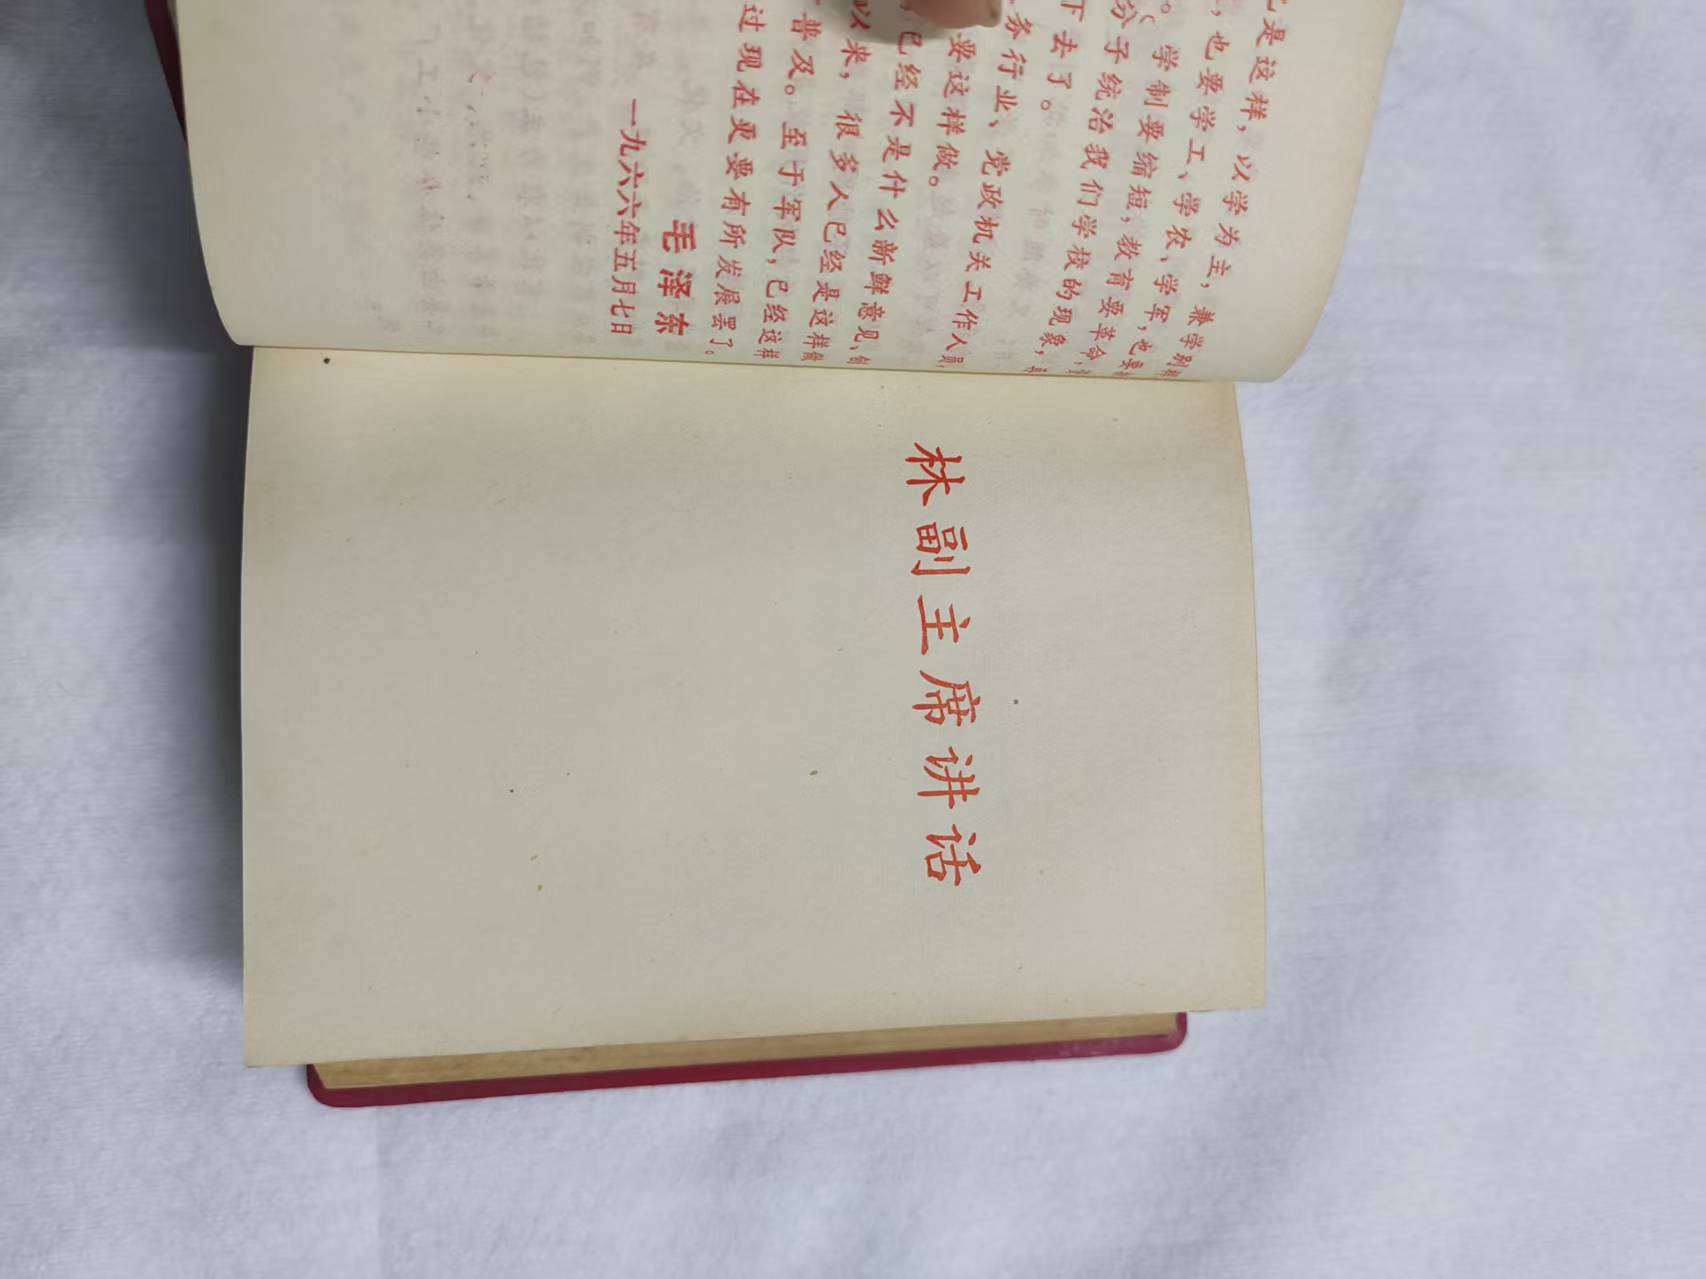 是这样，以学为主，兼学别
，也要学工、学农、学军，也要
。学制要缩短，教育要革命，
分子统治我们学校的现象，
下去了。
务行业、党政机关工作人员，
要这样做。
已经不是什么新鲜意见、创
以来，很多人已经是这样做
普及。至于军队，已经这样
过现在更要有所发展罢了。
毛泽东
一九六六年五月七日
林副主席讲话